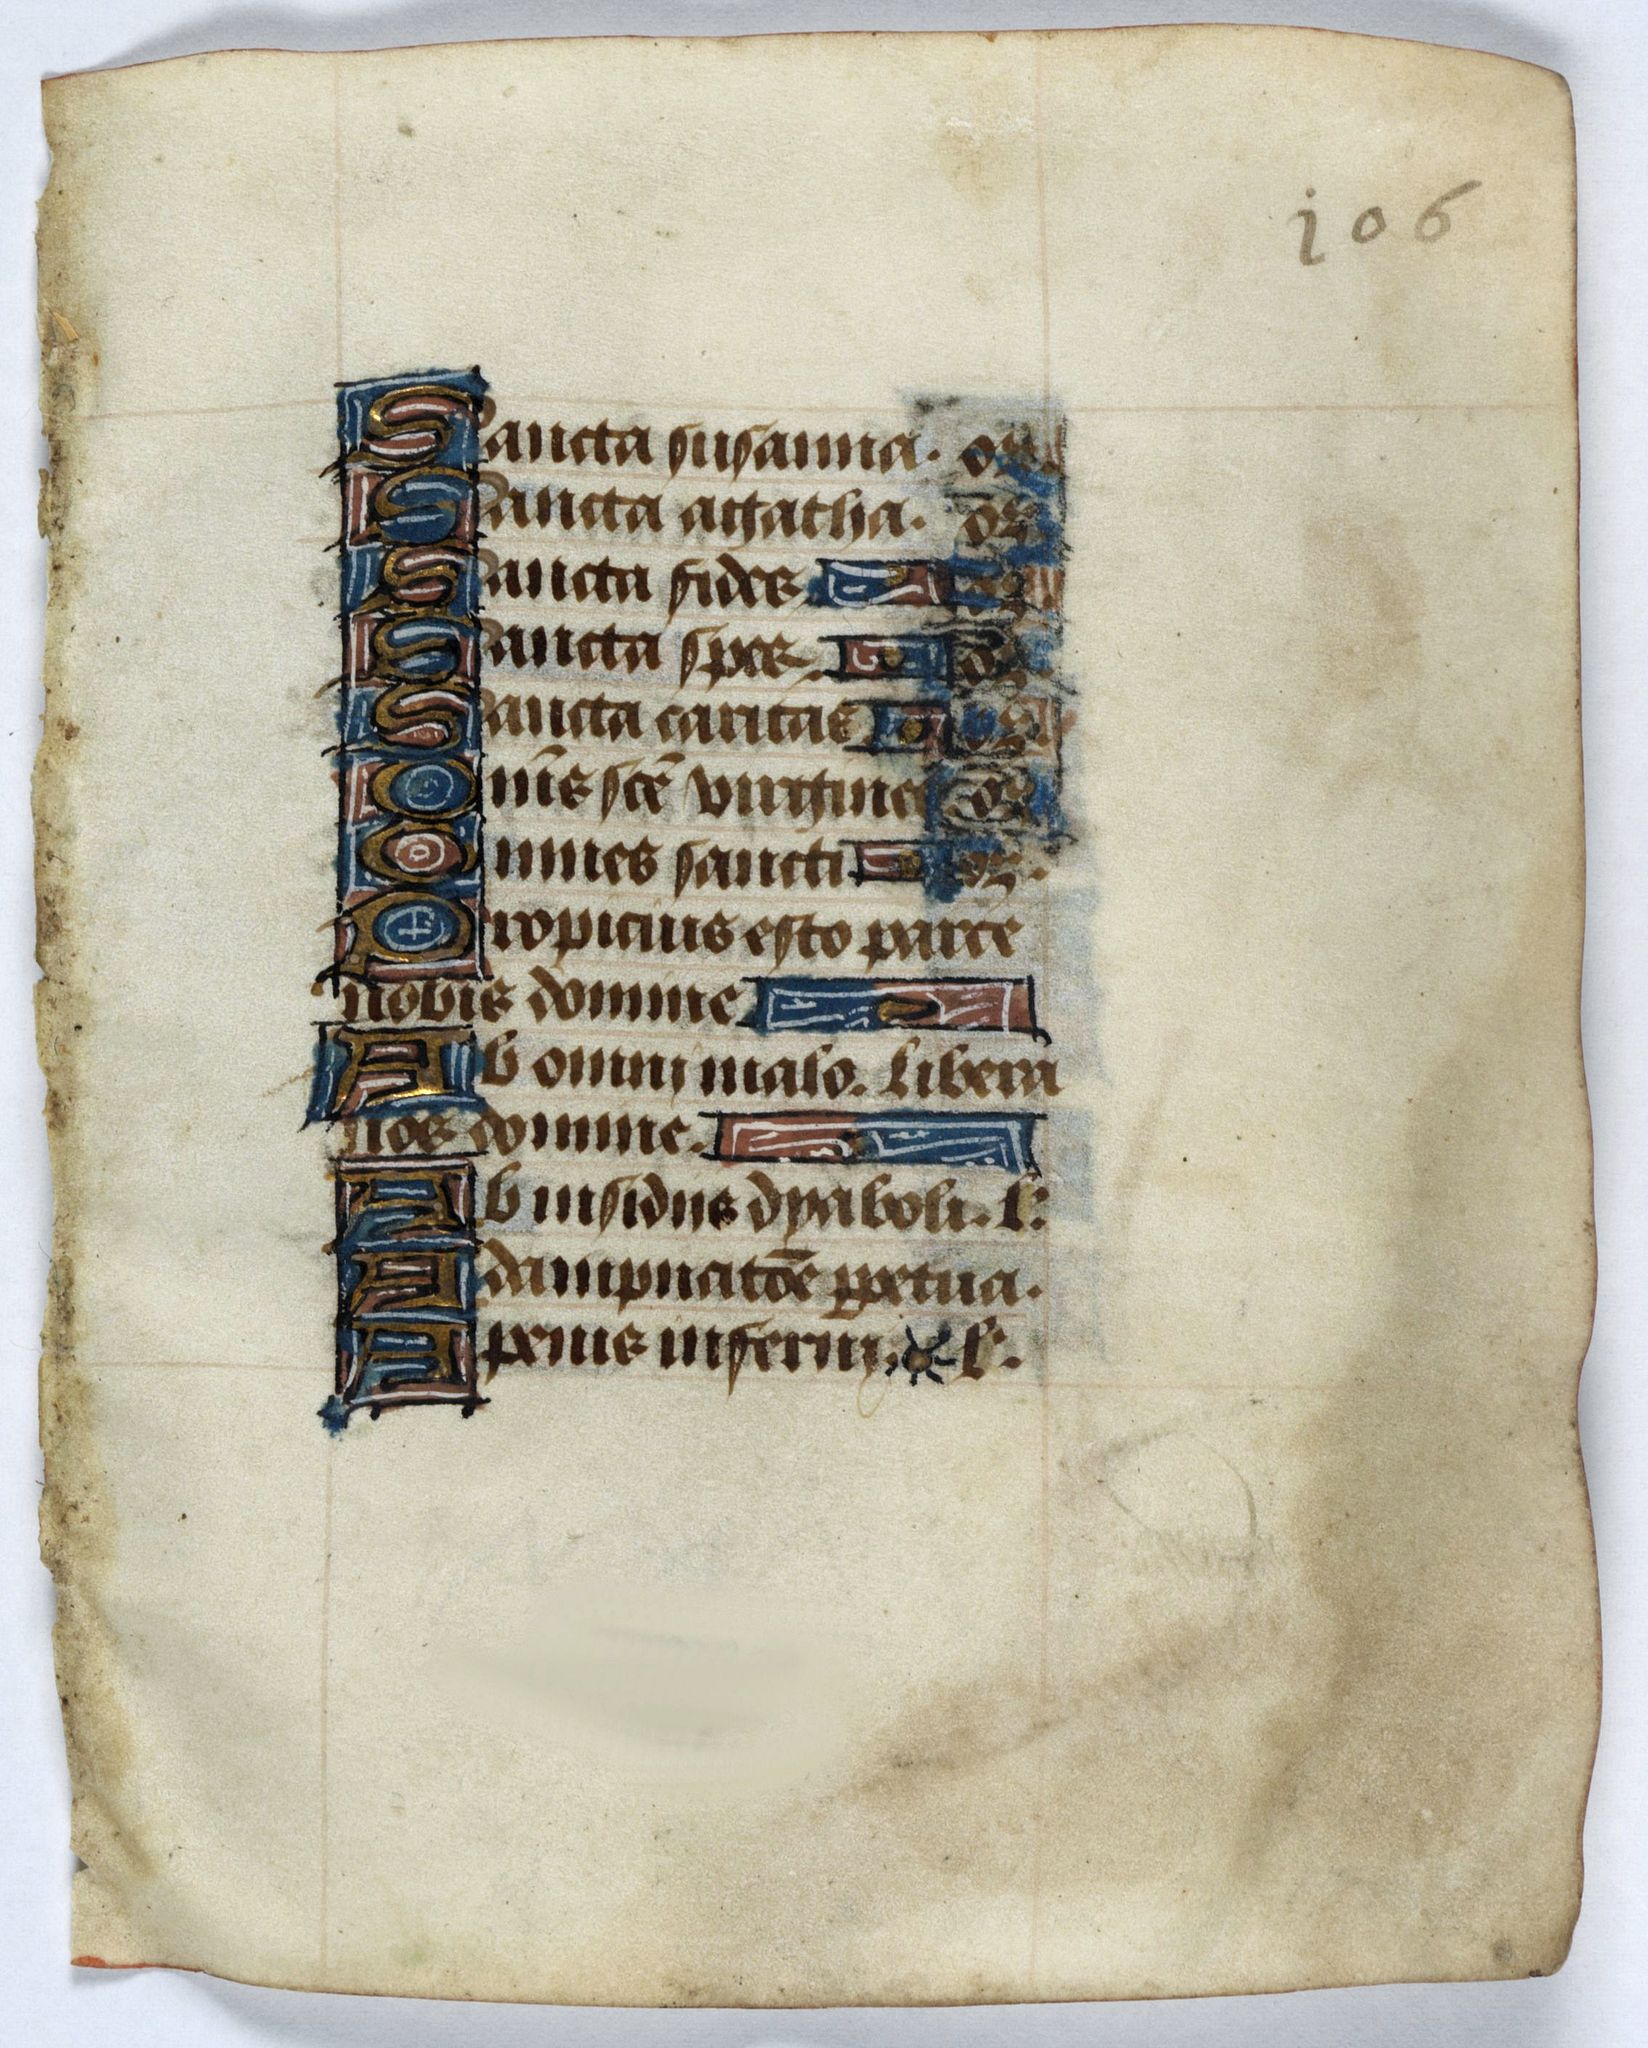 i06
Sancta susanna. or.
Sancta agatha. or
Sancta fides or
Sancta spes. or.
Sancta caritas or
Om̄s sc̄e virgines or
Omnes sancti. or.
Propicius esto parce
nobis domine
Ab omni malo. Libera
nos domine.
Ab insidiis dyaboli. l.
A dampnatōe ꝑpetua.
A penis inferni. l.